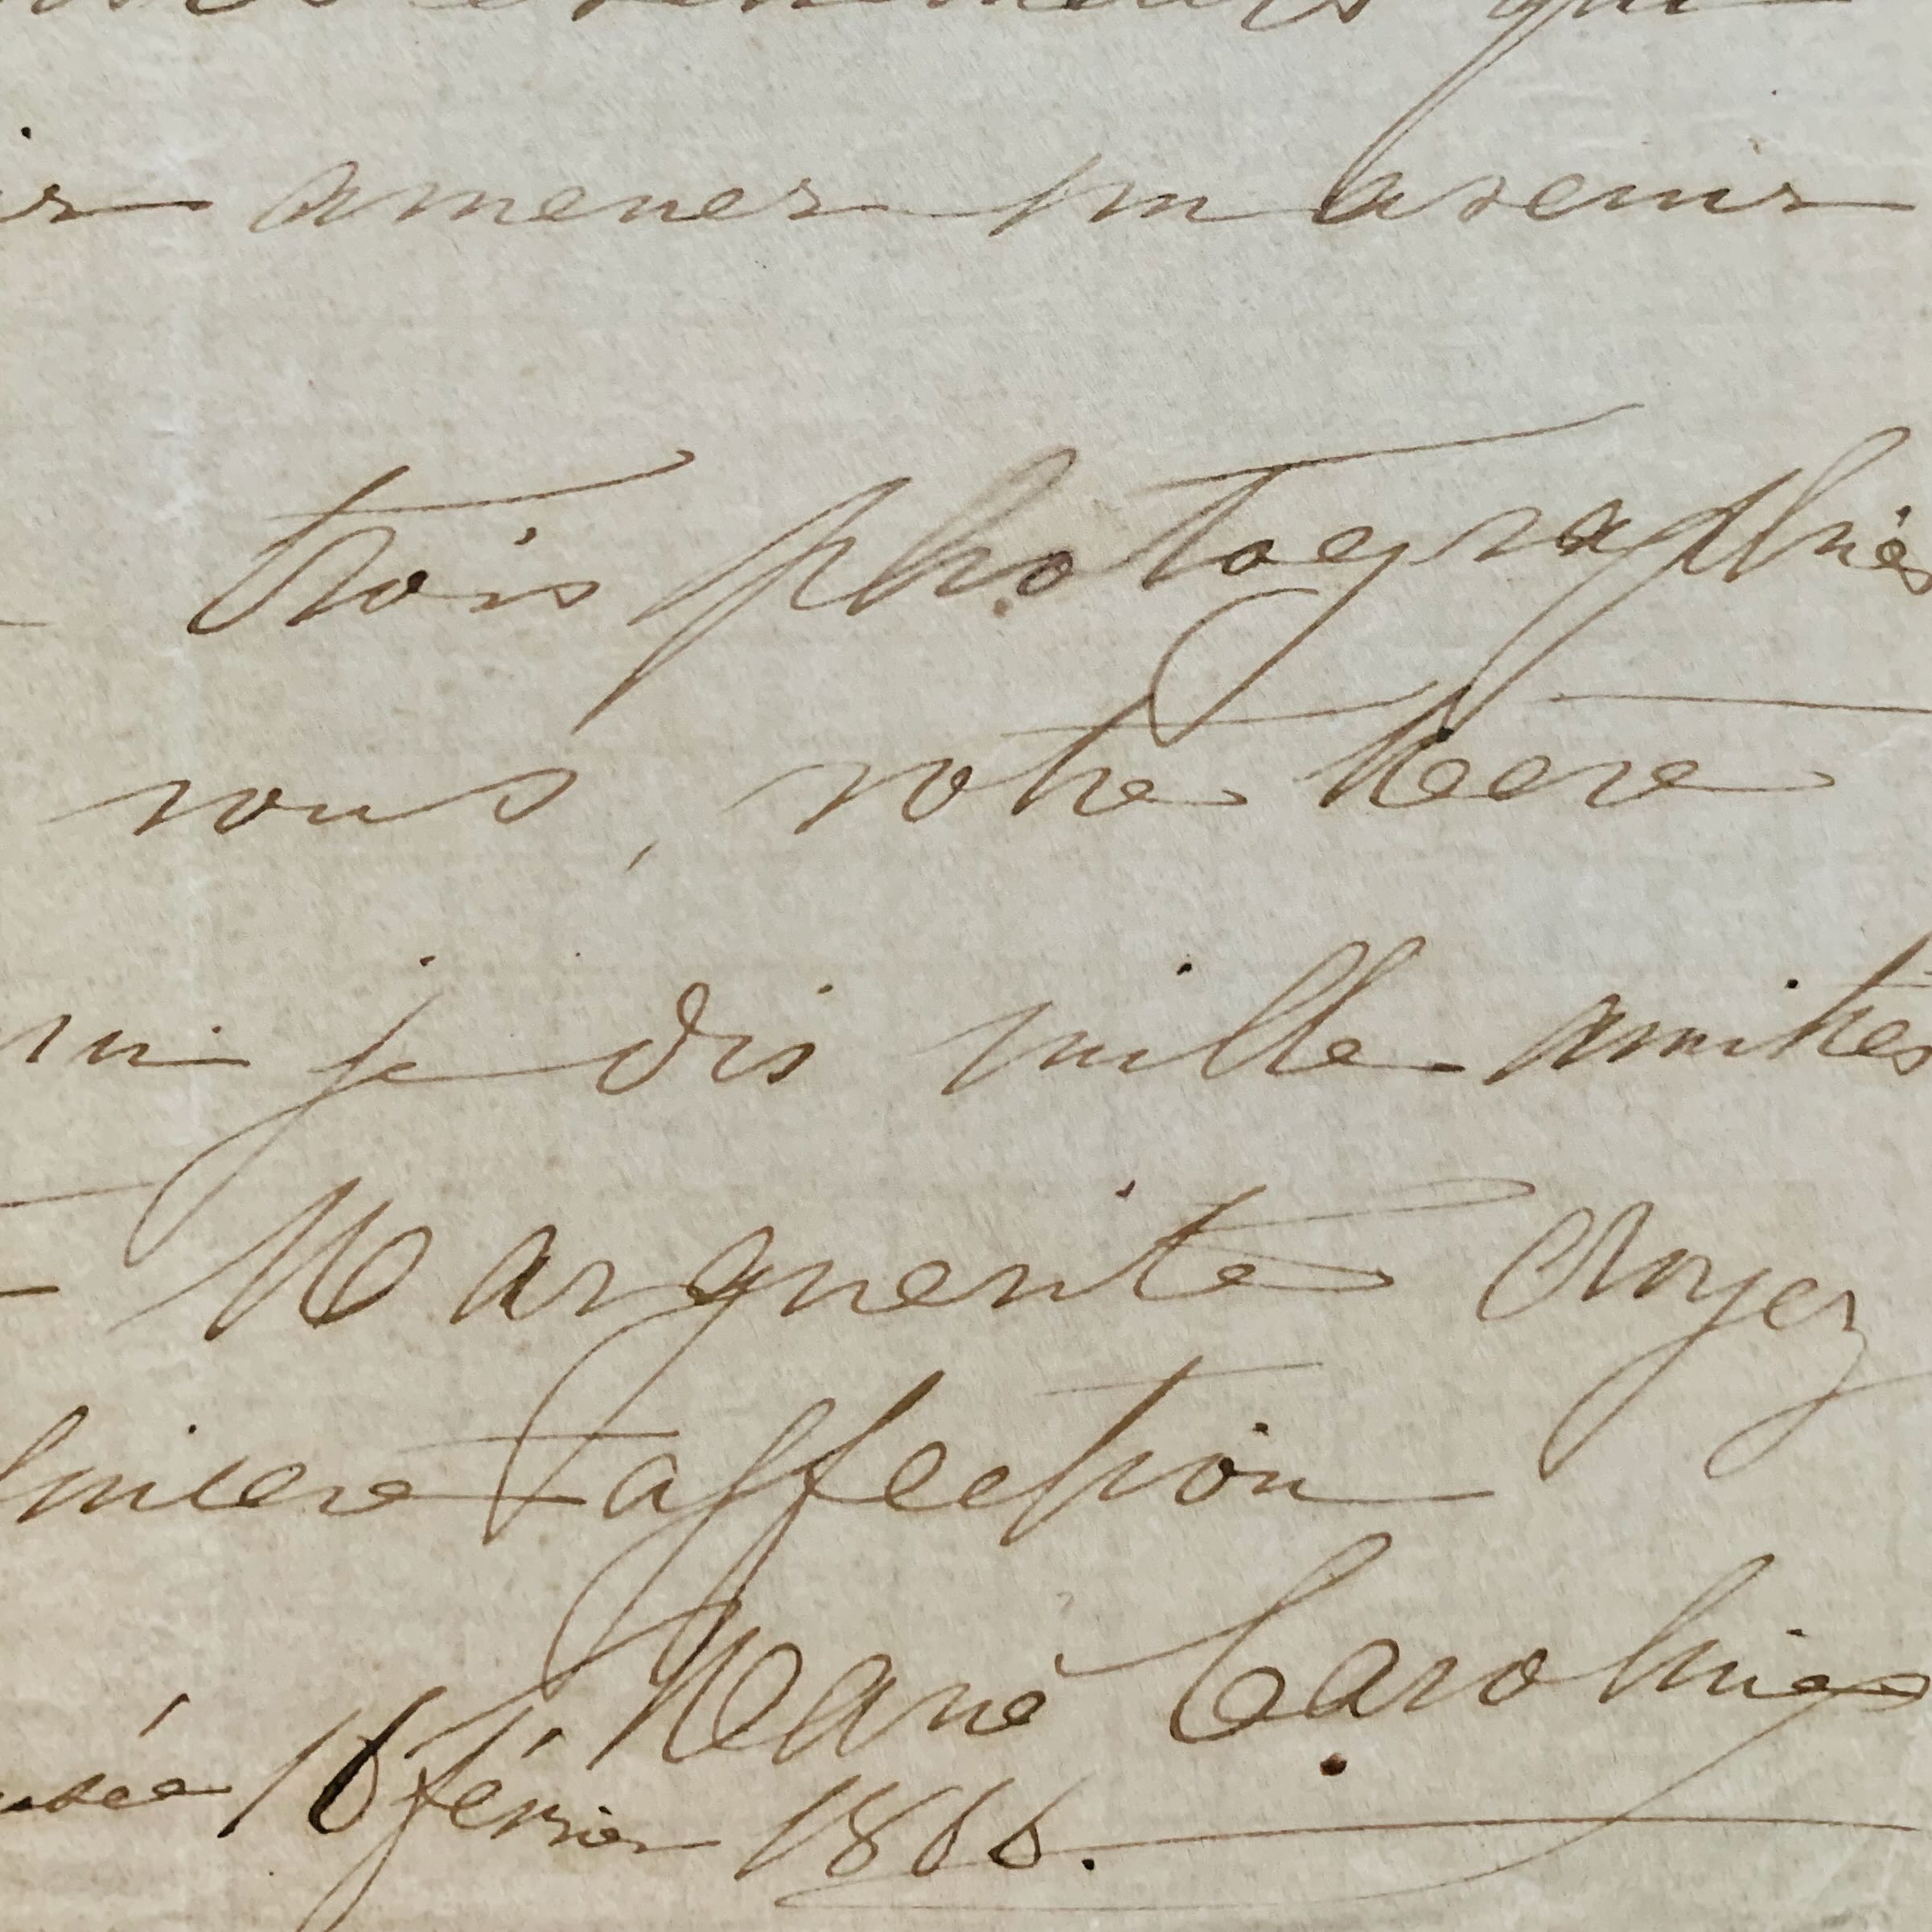 qui
amener un avenir
trois photographies
vous, votre Mere
je dis mille amitiés
Marguerite Croyez
sincere affection
Marie Caroline
16 février 1866.